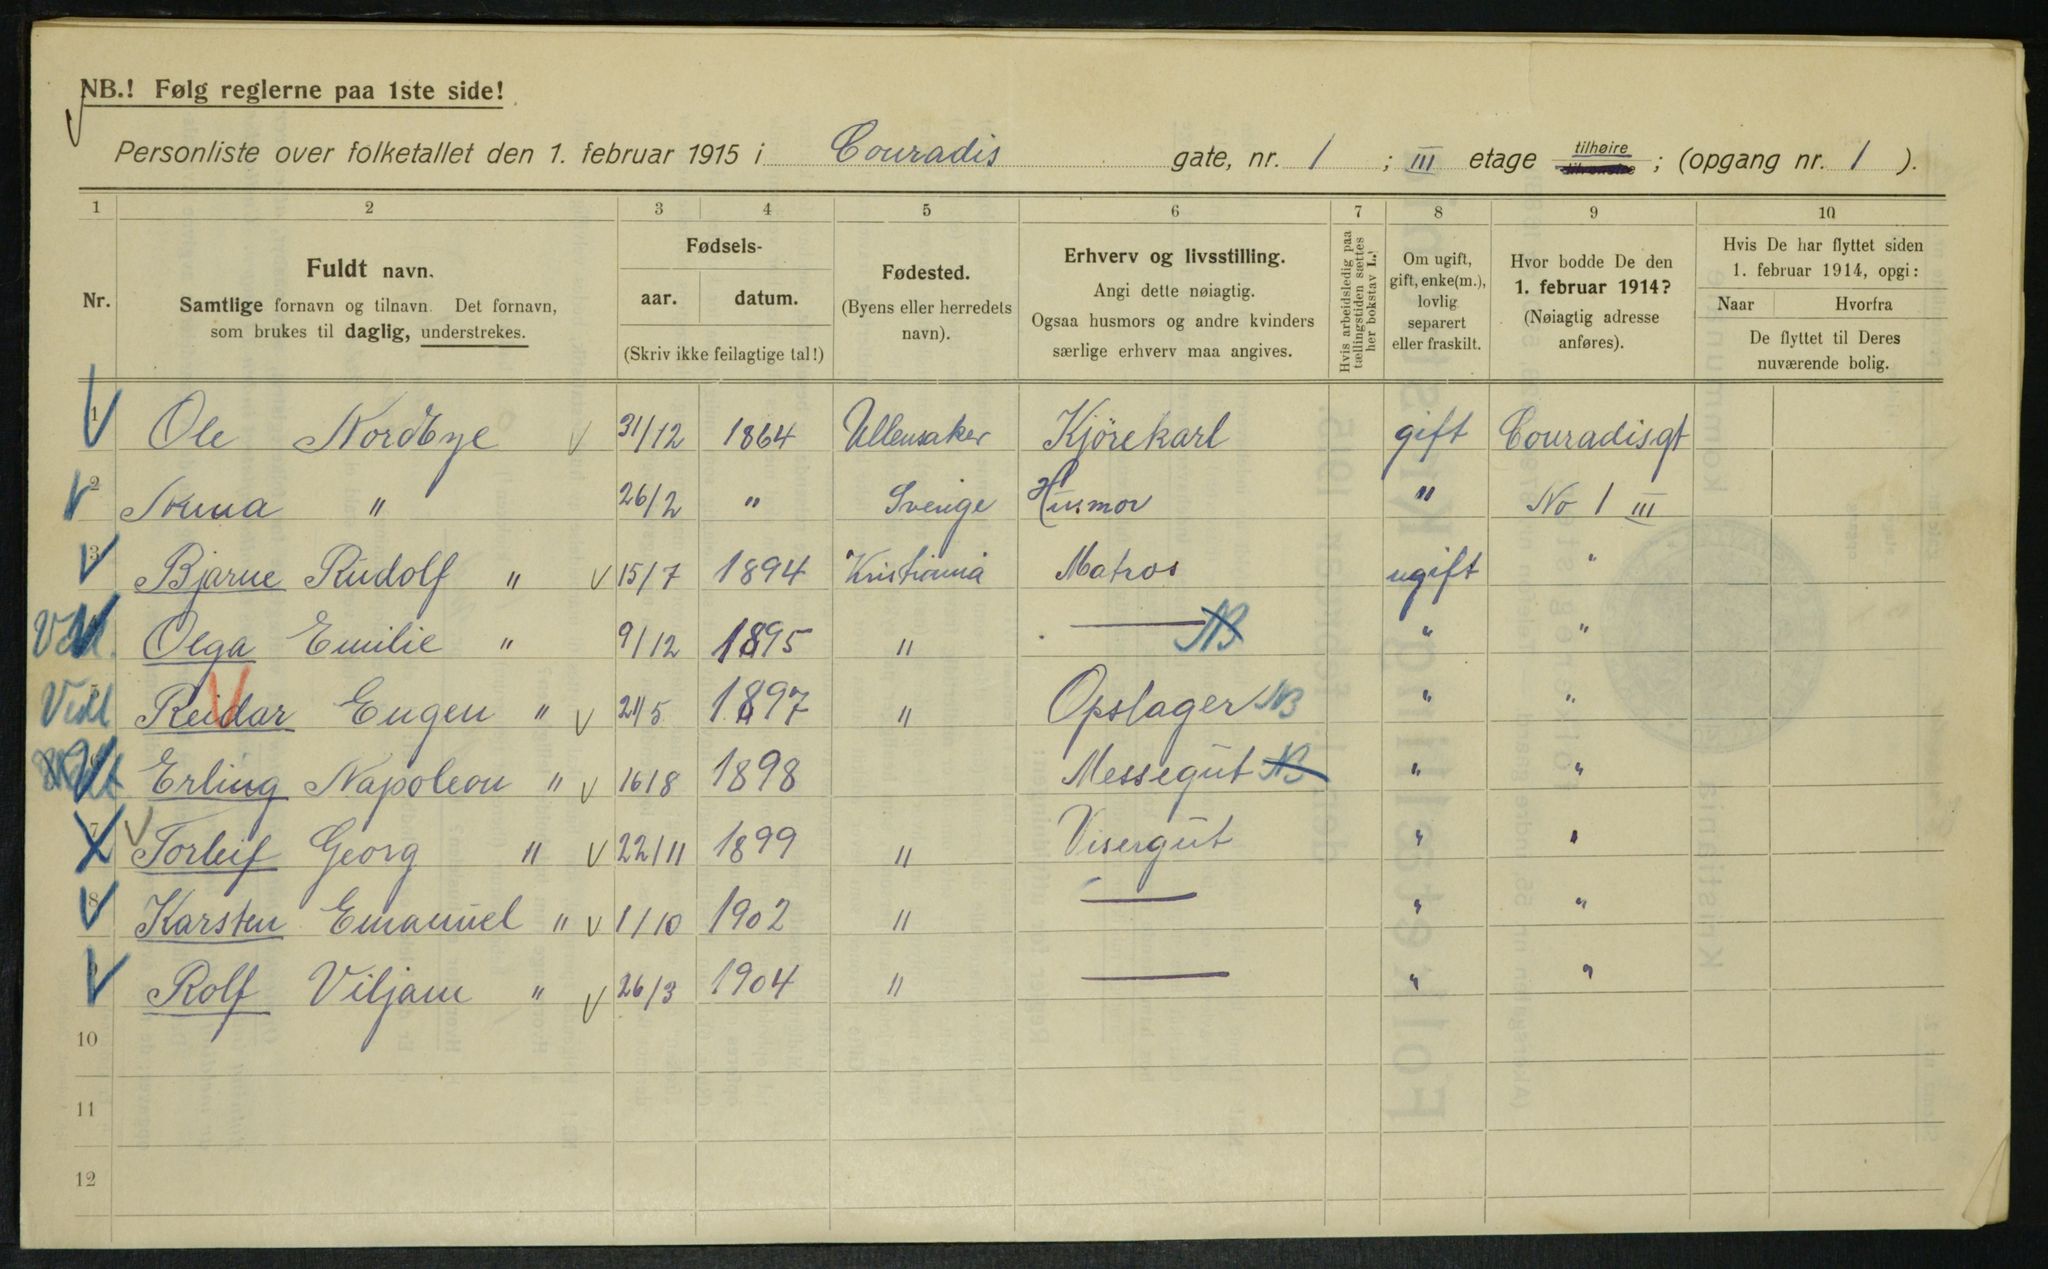 NB.! Følg reglerne paa 1ste side!
Personliste over folketallet den 1. februar 1915 i Conradis gate, nr. 1 ; III etage tilhøire ; (opgang nr. 1 ).
1 2 3 4 5 6 7 8 9 10
Nr.
Fuldt navn.
Samtlige fornavn og tilnavn. Det fornavn,
som brukes til daglig, understrekes.
Fødsels-
aar. datum.
(Skriv ikke feilagtige tal!)
Fødested.
(Byens eller herredets
navn).
Erhverv og livsstilling.
Angi dette nøiagtig.
Ogsaa husmors og andre kvinders
særlige erhverv maa angives.
Hvis arbeidsledig paa
tællingstiden sættes
her bokstav L.
Om ugift,
gift, enke(m.),
lovlig
separert
eller fraskilt.
Hvor bodde De den
1. februar 1914?
(Nøiagtig adresse
anføres).
Hvis De har flyttet siden
1. februar 1914, opgi:
Naar Hvorfra
De flyttet til Deres
nuværende bolig.
1 Ole Nordbye 31/12 1864 Ullensaker Kjörekarl gift Conradisgt
2 Anna " 26/2 " Sverige Husmor " No 1 III
3 Bjarne Rudolf " 15/7 1894 Kristiania Matros ugift "
Olga Emilie " 9/12 1895 " — NB " "
Vedl 5 Reidar Eugen " 21/5 1897 " Opslager NB " "
Erling Napoleon " 16/8 1898 Messegut NB " "
7 Torleif Georg " 22/11 1899 " Visergut " "
8 Karsten Emanuel " 1/10 1902 " — " "
9 Rolf Viljam " 26/3 1904 " — " "
10
11
12